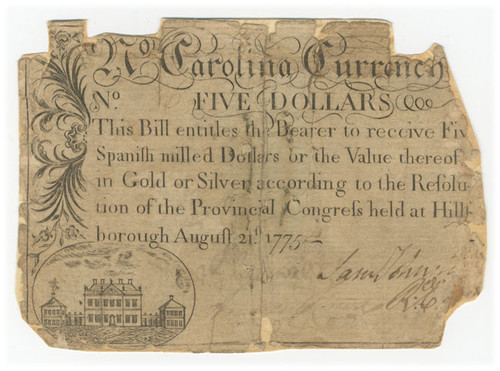 No. Carolina Currency
No. FIVE DOLLARS
This Bill entitles the Bearer to receive Fiv
Spanish milled Dollars or the Value thereof
in Gold or Silver according to the Resolu
tion of the Provincial Congress held at Hills
borough August 21st 1775